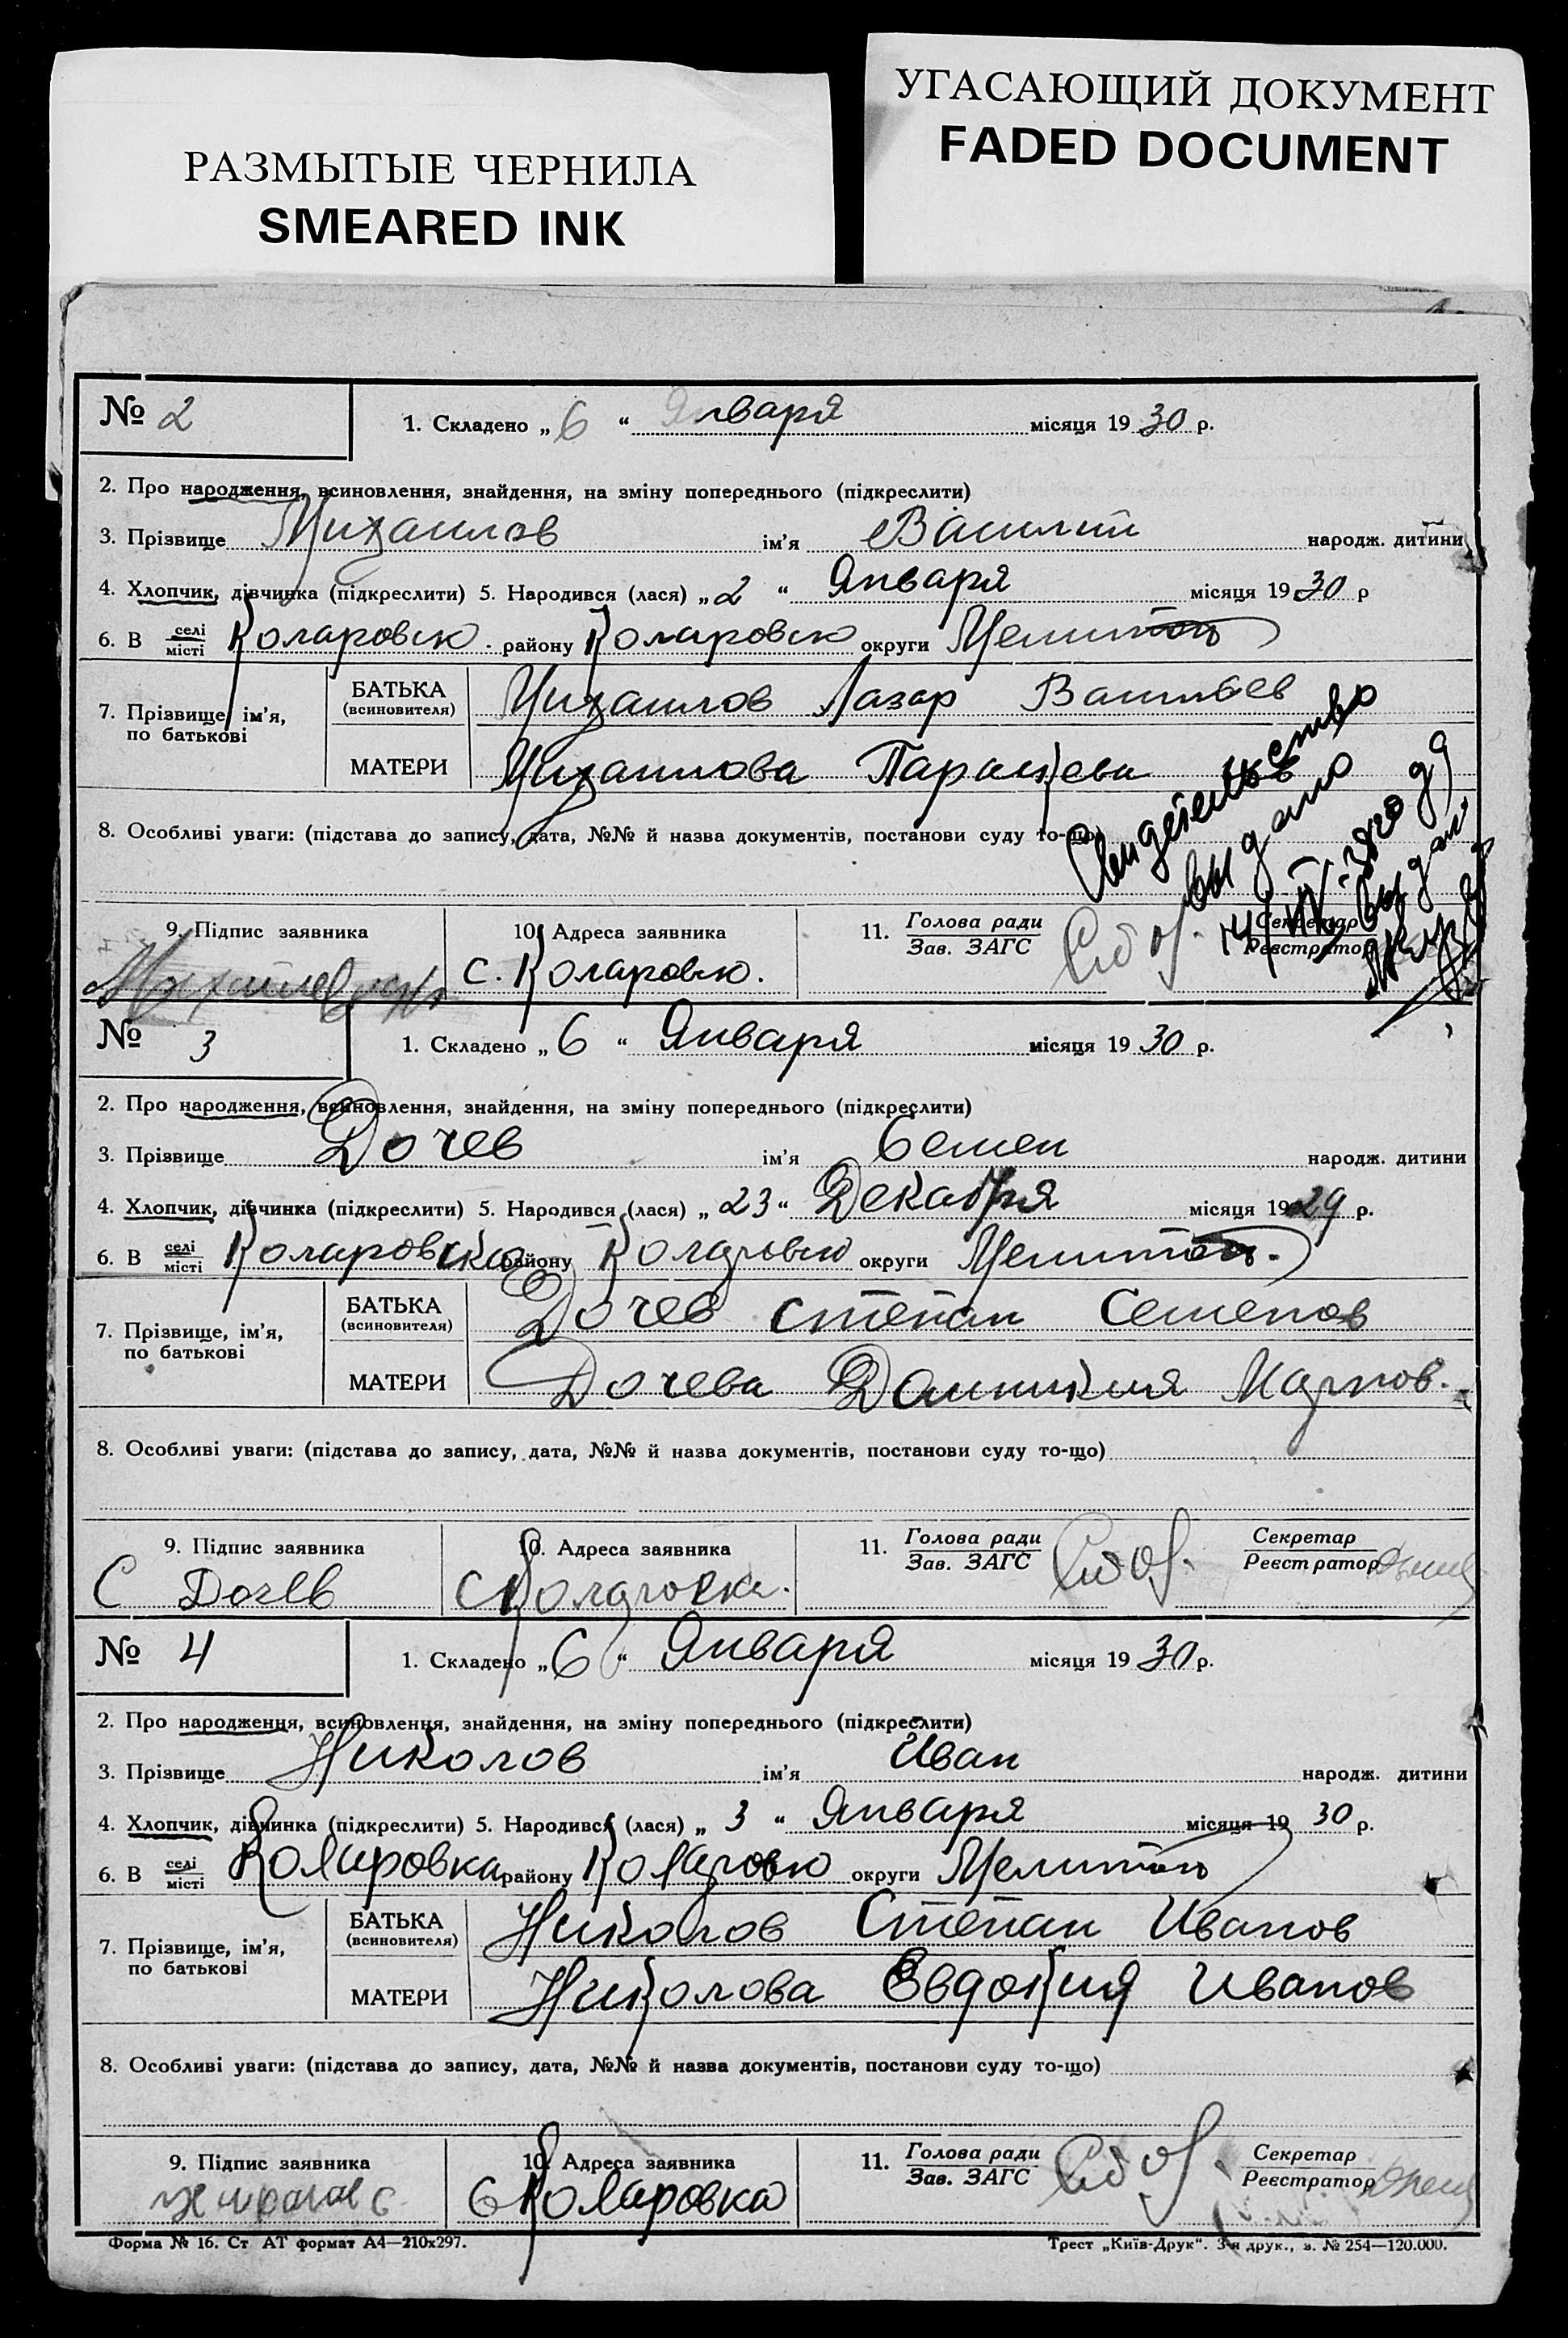 РАЗМЫТЫЕ ЧЕРНИЛА
SMEARED INK
УГАСАЮЩИЙ ДОКУМЕНТ
FADED DOCUMENT
№ 2
1. Складено „ 6 “ Января місяця 19 30 р.
2. Про народження, всиновлення, знайдення, на зміну попереднього (підкреслити)
3. Прізвище Михаилов ім'я Василий народж. дитини
4. Хлопчик, дівчинка (підкреслити) 5. Народився (лася) „ 2 “ Января місяця 19 30 р
6. В селі/місті Коларовко району Коларовко округи Мелитоп
7. Прізвище, ім'я, по батькові
БАТЬКА (всиновителя) Михаилов Лазар Васильев
МАТЕРИ Михаилова Параскева
8. Особливі уваги: (підстава до запису, дата, №№ й назва документів, постанови суду то-що)
Свидетельство
выдано
9. Підпис заявника
10. Адреса заявника
11. Голова ради
Зав. ЗАГС
Секретар
Реєстратор
с. Коларовко.
№ 3
1. Складено „ 6 “ Января місяця 19 30 р.
2. Про народження, всиновлення, знайдення, на зміну попереднього (підкреслити)
3. Прізвище Дочев ім'я Семен народж. дитини
4. Хлопчик, дівчинка (підкреслити) 5. Народився (лася) „ 23 “ Декабря місяця 19 29 р.
6. В селі/місті Коларовка району Коларовко округи Мелитоп.
7. Прізвище, ім'я, по батькові
БАТЬКА (всиновителя) Дочев Степан Семенов
МАТЕРИ Дочева Домникия Марков.
8. Особливі уваги: (підстава до запису, дата, №№ й назва документів, постанови суду то-що)
9. Підпис заявника
10. Адреса заявника
11. Голова ради
Зав. ЗАГС
Секретар
Реєстратор
С Дочев
с Коларовка.
№ 4
1. Складено „ 6 “ Января місяця 19 30 р.
2. Про народження, всиновлення, знайдення, на зміну попереднього (підкреслити)
3. Прізвище Николов ім'я Иван народж. дитини
4. Хлопчик, дівчинка (підкреслити) 5. Народився (лася) „ 3 “ Января місяця 19 30 р.
6. В селі/місті Коларовка району Коларовко округи Мелитоп
7. Прізвище, ім'я, по батькові
БАТЬКА (всиновителя) Николов Степан Иванов
МАТЕРИ Николова Евдокия Иванов
8. Особливі уваги: (підстава до запису, дата, №№ й назва документів, постанови суду то-що)
9. Підпис заявника
10. Адреса заявника
11. Голова ради
Зав. ЗАГС
Секретар
Реєстратор
Николов С
С Коларовка
Форма № 16. Ст АТ формат А4—210x297.
Трест „Київ-Друк“. 3-я друк., з. № 254—120.000.